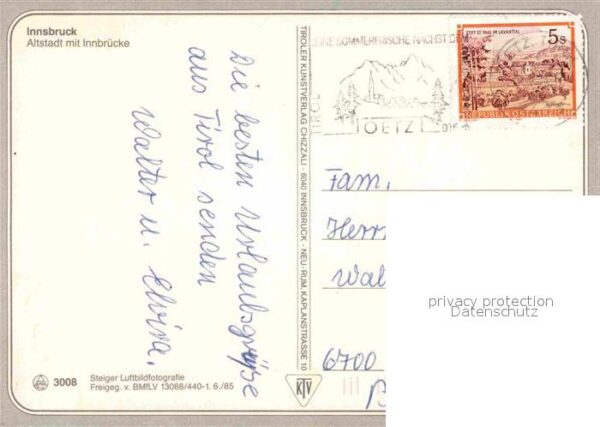 Innsbruck
Altstadt mit Innbrücke
Die besten Urlaubsgrüße
aus Tirol senden
Walter u. Elvira.
3008
Steiger Luftbildfotografie
Freigeg. v. BMfLV 13088/440-1. 6./85
TIROLER KUNSTVERLAG CHIZZALI · 6040 INNSBRUCK - NEU-RUM, KAPLANSTRASSE 10
KTV
SOMMERFRISCHE NÄCHST
TIROL
OETZ
STIFT ST. PAUL IM LAVANTTAL
5s
REPUBLIK ÖSTERREICH
Fam.
Herr
Wal
6700
privacy protection
Datenschutz